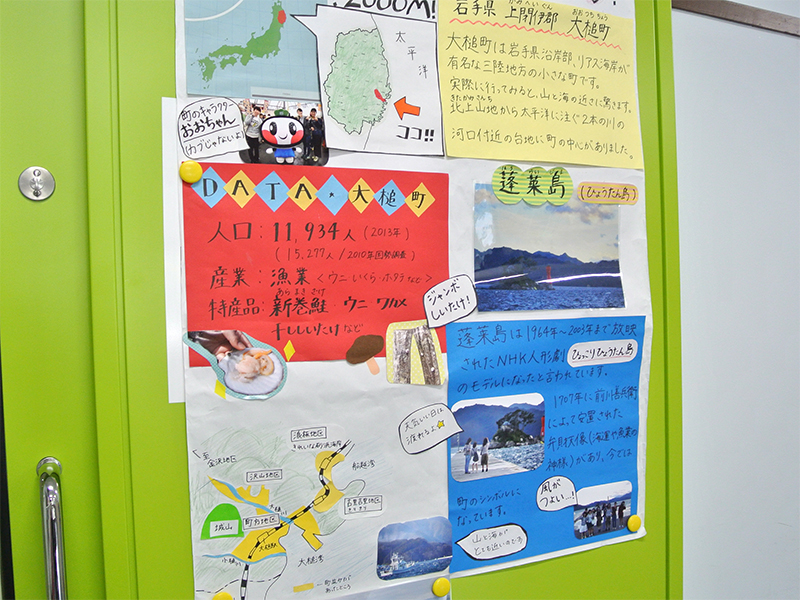 2000M!
太平洋
ココ!!
町のキャラクター
おおちゃん
(カブじゃないよ)
かみへいぐん おおつちちょう
岩手県 上閉伊郡 大槌町
大槌町は岩手県沿岸部、リアス海岸が
有名な三陸地方の小さな町です。
実際に行ってみると、山と海の近さに驚きます。
きたかみさんち
北上山地から太平洋に注ぐ2本の川の
河口付近の台地に町の中心がありました。
DATA★大槌町
人口:11,934人(2013年)
(15,277人/2010年国勢調査)
産業:漁業<ウニ いくら・ホタテなど>
あらまきさけ
特産品:新巻鮭 ウニ ワカメ
干ししいたけ など
ジャンボ
しいたけ!
蓬莱島
(ひょうたん島)
蓬莱島は1964年~2003年まで放映
されたNHK人形劇 ひょっこりひょうたん島
のモデルになったと言われています。
1707年に前川善兵衛
によって安置された
弁財天像(海運や漁業の
神様)があり、今では
町のシンボルに
なっています。
天気いい日は
渡れるよ
風が
つよい…!
山と海が
とても近いのです
至
金沢地区
沢山地区
浪板地区
きれいな砂浜海岸
船越湾
吉里吉里地区
きりきり
大槌
町方地区
城山
大槌駅
小槌川
大槌湾